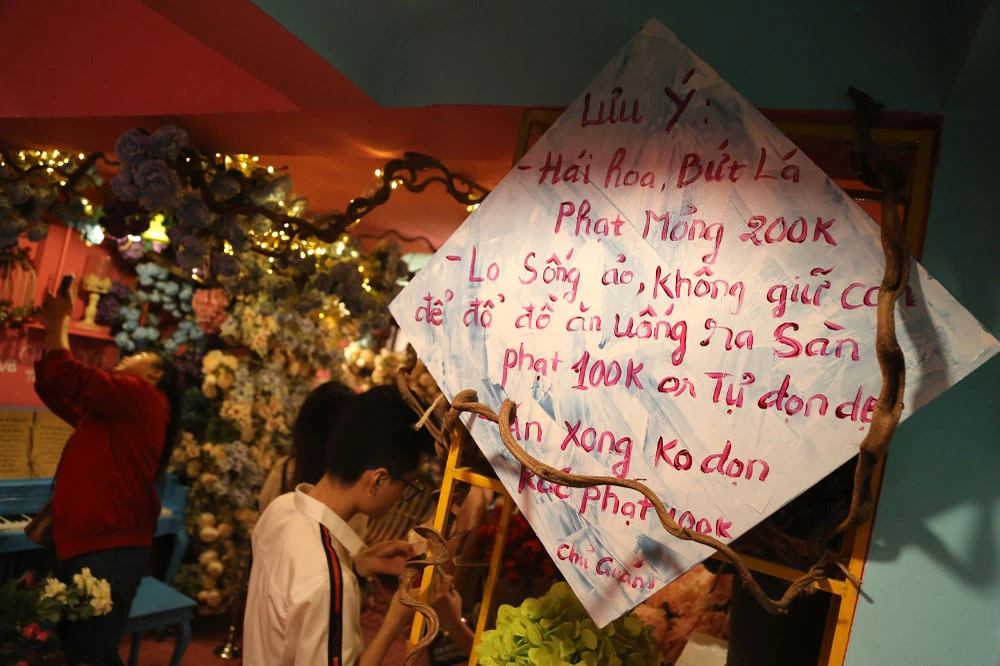 Lưu Ý:
- Hái hoa, Bứt Lá
Phạt Mỏng 200K
- Lo Sống ảo, không giữ con
để đổ đồ ăn uống ra Sàn
phạt 100K or Tự dọn dẹ
Ăn xong Ko dọn
Rác phạt 100K
Chủ Quán!